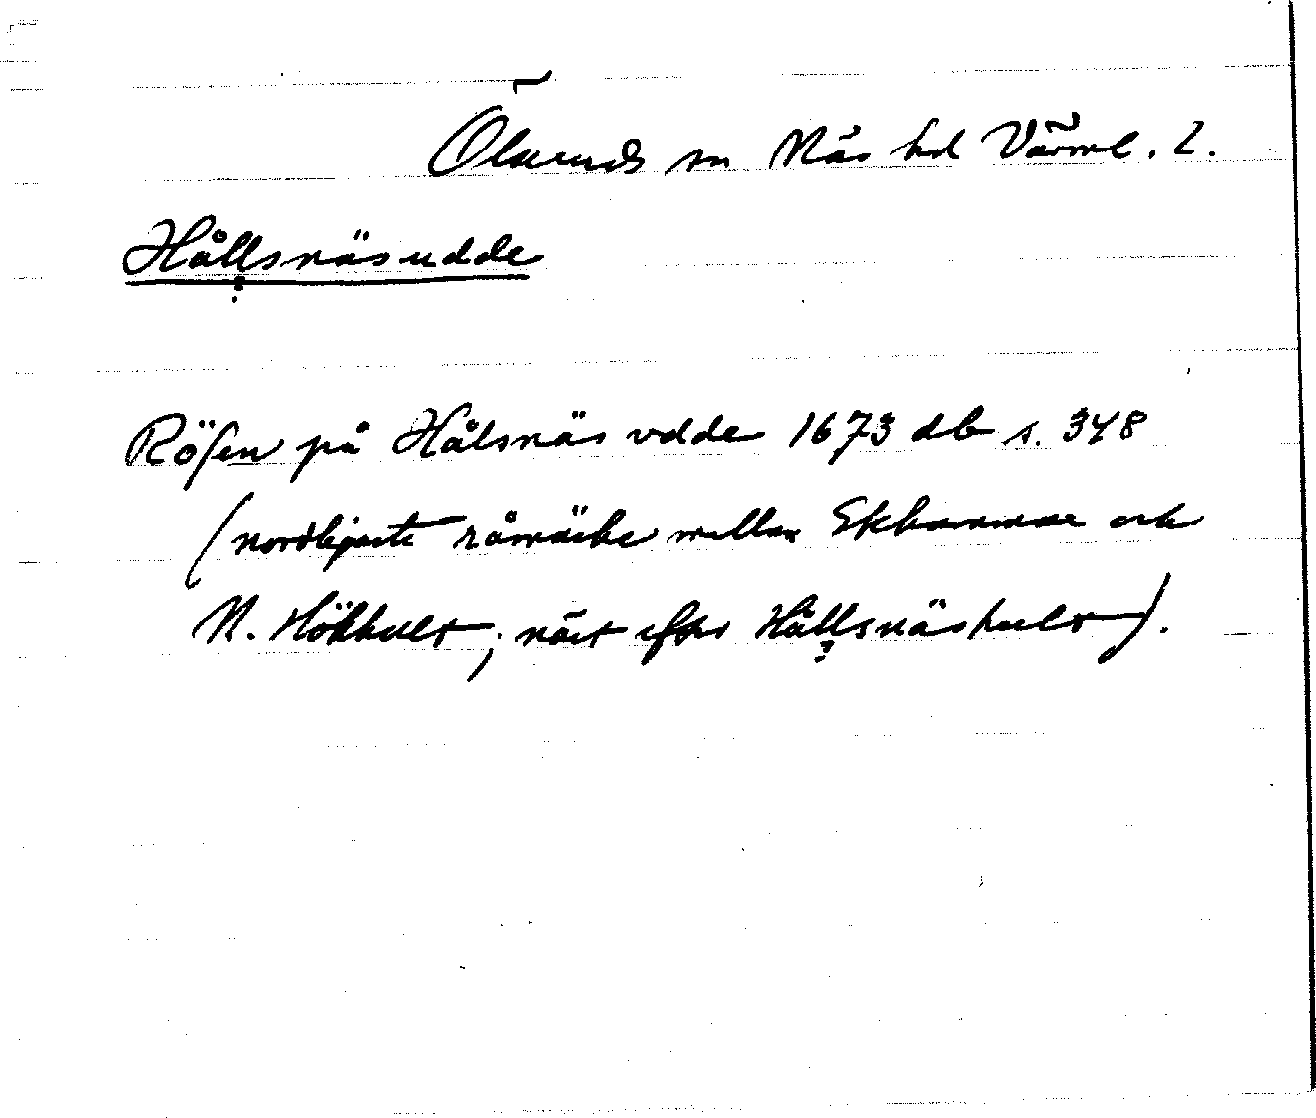 Ölseruds sn Näs hd Värml. l.
Hållsnäsudde
Rösen på Hålsnäs vdde 1673 db s. 348
(nordligaste råmärke mellan Ekhammar och
N. Hökhult; näst efter Hållsnäshult).